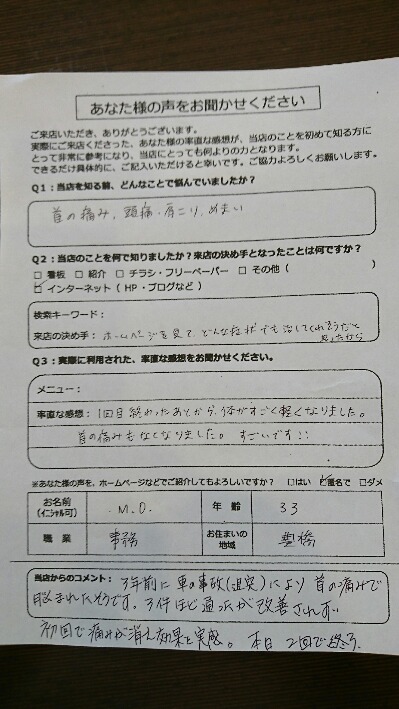 あなた様の声をお聞かせください
ご来店いただき、ありがとうございます。
実際にご来店くださった、あなた様の率直な感想が、当店のことを初めて知る方に
とって非常に参考になり、当店にとっても何よりの力となります。
できるだけ具体的に、ご記入いただけると幸いです。ご協力よろしくお願いします。
Q1:当店を知る前、どんなことで悩んでいましたか?
首の痛み、頭痛・肩こり、めまい
Q2:当店のことを何で知りましたか?来店の決め手となったことは何ですか?
□ 看板 □ 紹介 □ チラシ・フリーペーパー □ その他( )
☑ インターネット(HP・ブログなど)
検索キーワード:
来店の決め手:ホームページを見て、どんな症状でも治してくれそうだと
思ったから
Q3:実際に利用された、率直な感想をお聞かせください。
メニュー:
率直な感想:1回目終わったあとから、体がすごく軽くなりました。
首の痛みもなくなりました。すごいです!!
※あなた様の声を、ホームページなどでご紹介してもよろしいですか? □はい ☑匿名で □ダメ
お名前 (イニシャル可) M.O. 年齢 33
職業 事務 お住まいの地域 豊橋
当店からのコメント:3年前に車の事故(追突)により首の痛みで
悩まれたそうです。3件ほど通ったが改善されず、
初回で痛みが消え効果を実感。本日2回で終了